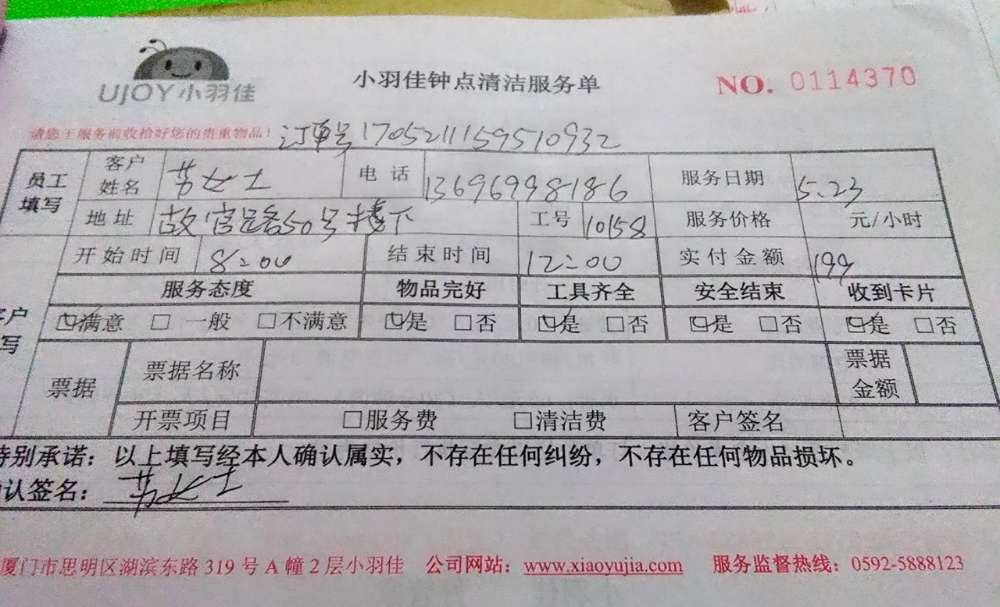 UJOY小羽佳
小羽佳钟点清洁服务单
NO. 0114370
请您于服务前收拾好您的贵重物品！
订单号1705211159510932
员工填写 客户姓名 苏女士 电 话 13696998186 服务日期 5.23
地 址 故宫路50号楼下 工号 10158 服务价格 元/小时
开始时间 8:00 结束时间 12:00 实付金额 199
服务态度 物品完好 工具齐全 安全结束 收到卡片
☑满意 □ 一般 □不满意 ☑是 □否 ☑是 □否 ☑是 □否 ☑是 □否
票据 票据名称 票据金额
开票项目 □服务费 □清洁费 客户签名
特别承诺：以上填写经本人确认属实，不存在任何纠纷，不存在任何物品损坏。
确认签名：苏女士
厦门市思明区湖滨东路 319 号 A 幢 2 层小羽佳 公司网站：www.xiaoyujia.com 服务监督热线：0592-5888123